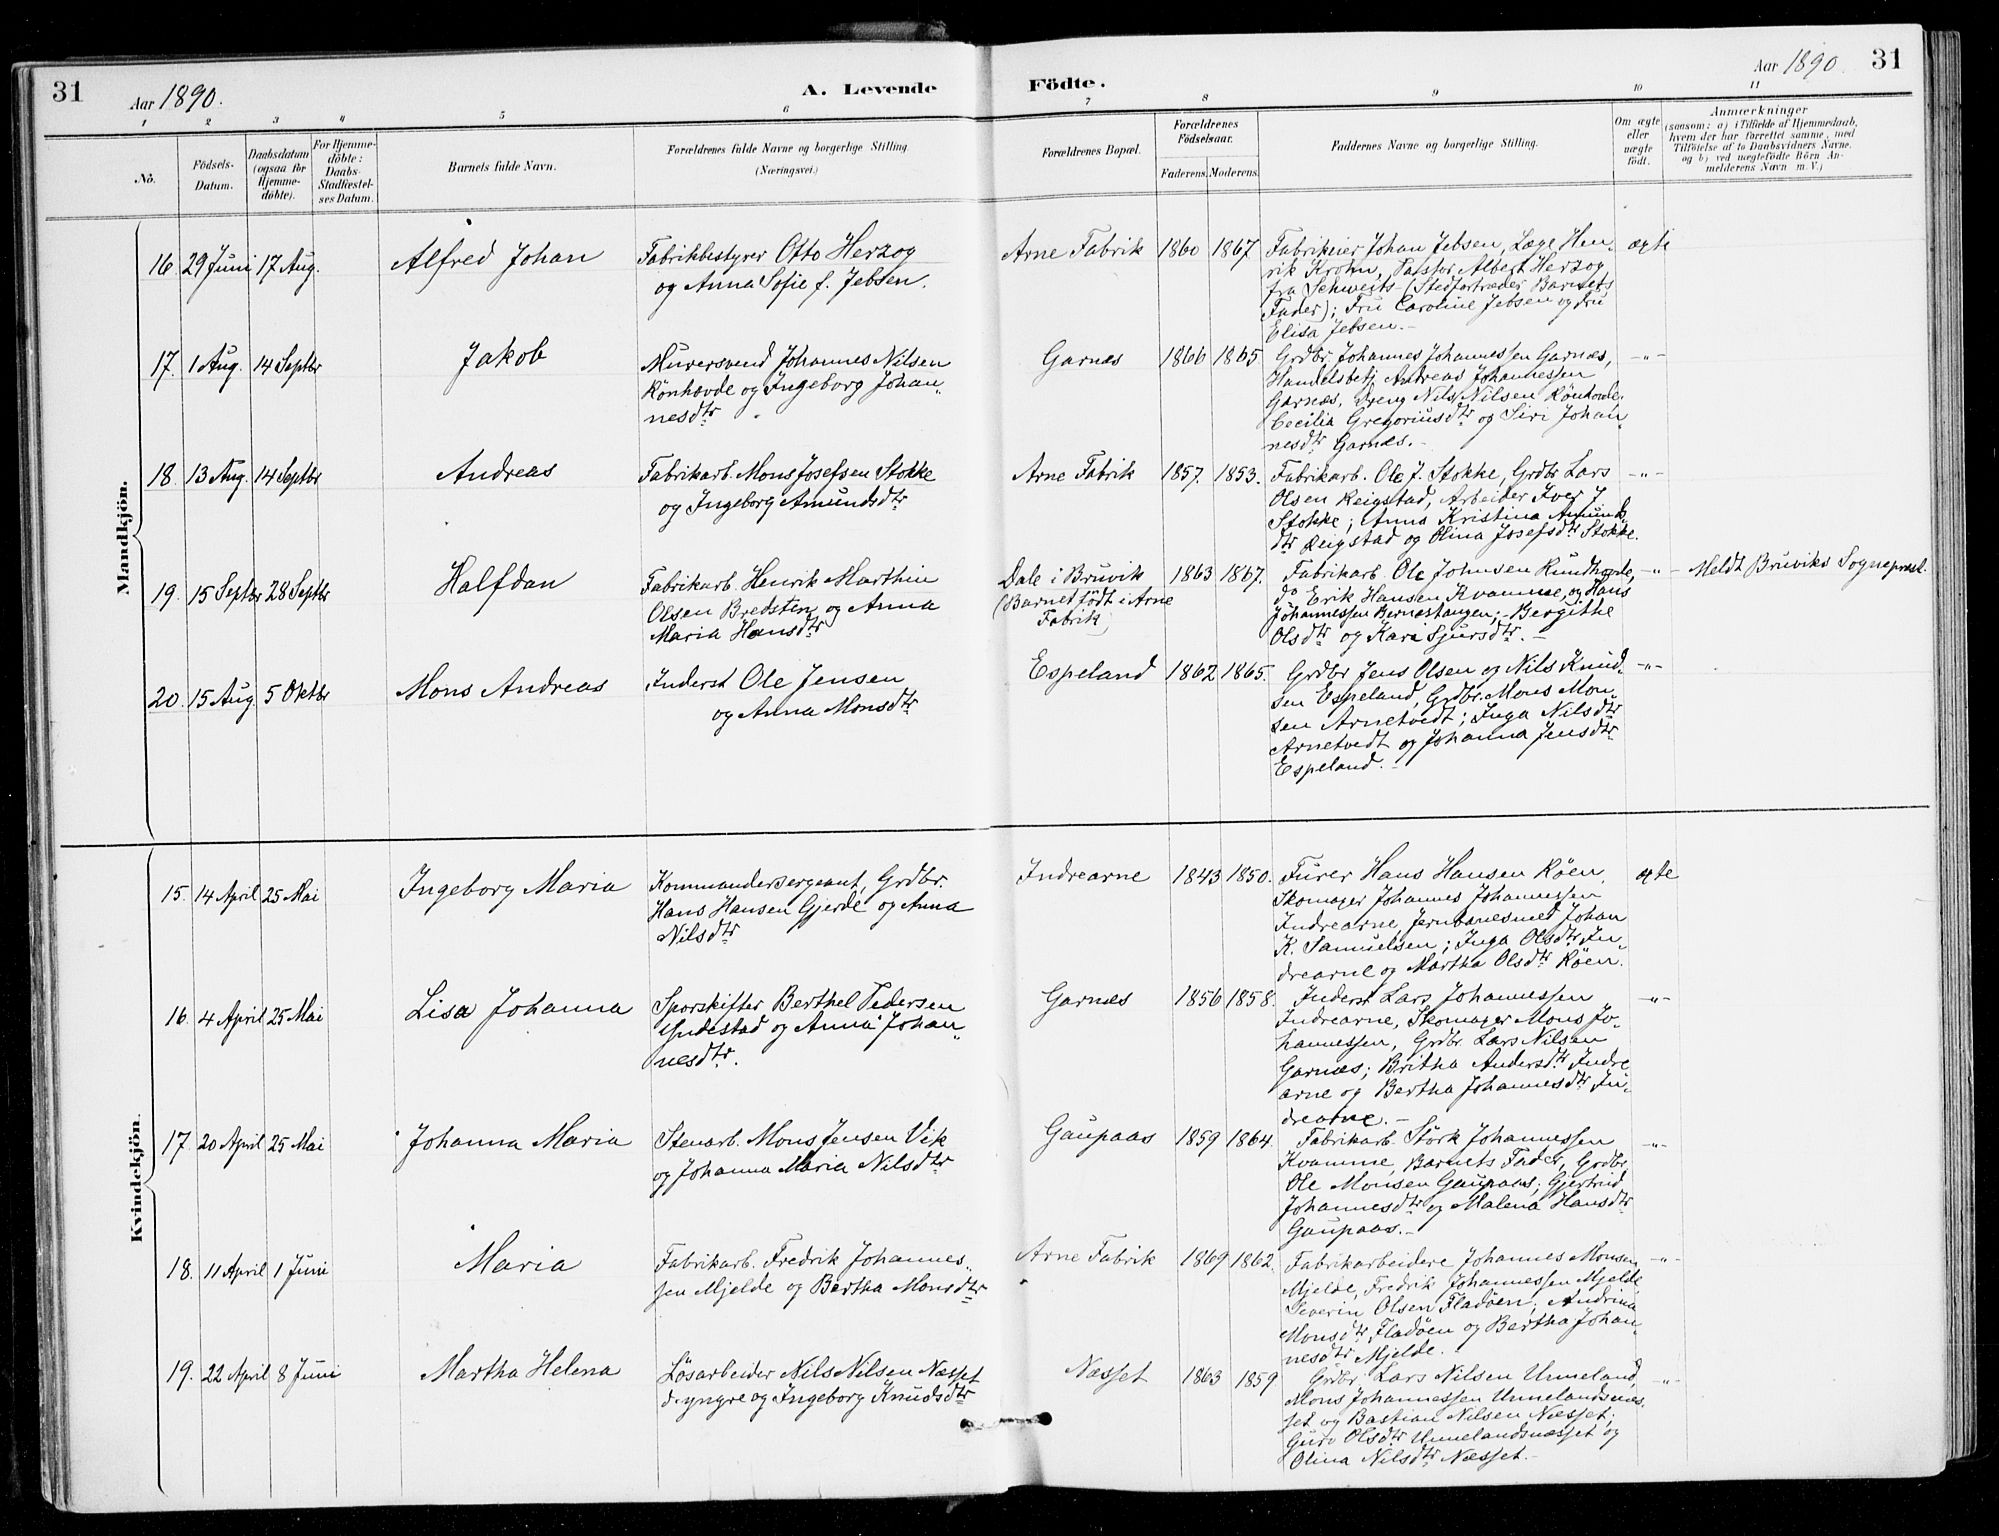 31
Aar 1890.
A. Levende
Födte.
Aar 1890.
31
1
2
3
4
5
6
7
8
9
10
11
No.
Födsels-
Datum.
Daabsdatum
(ogsaa for
Hjemme-
döbte).
For Hjemme-
döbte:
Daabs-
Stadfæstel-
ses Datum.
Barnets fulde Navn.
Forældrenes fulde Navne og borgerlige Stilling
(Næringsvei.)
Forældrenes Bopæl.
Forældrenes
Födselsaar.
Faderens. Moderens.
Faddernes Navne og borgerlige Stilling.
Om ægte
eller
uægte
födt.
Anmærkninger
(saasom: a) i Tilfælde af Hjemmedaab,
hvem der har forrettet samme, med
Tilföielse af to Daabsvidners Navne.
og b) ved uægtefödte Börn An-
melderens Navn m. V.)
Mandkjön.
16 29 Juni 17 Aug.
Alfred Johan
Fabrikbestyrer Otto Herzog
og Anna Sofie f. Jebsen.
Arne Fabrik 1860 1867
Fabrikeier Johan Jebsen, Læge Hen-
rik Krohn, Pastor Albert Herzog
fra Schweits (Stedfortræder Barnets
Fader); Fru Caroline Jebsen og Fru
Elisa Jebsen.-
ægte
17. 1 Aug. 14 Septbr
Jakob
Murersvend Johannes Nilsen
Rönhovde og Ingeborg Johan-
nesdtr
Garnæs 1866 1865
Grdbr. Johannes Johannessen Garnæs,
Handelsbetj. Andreas Johannessen
Garnæs, Dreng Nils Nilsen Rönhovde,
Cecilia Gregoriusdtr og Siri Johan-
nesdtr Garnæs.-
-"-
18. 13 Aug. 14 Septbr
Andreas
Fabrikarb. Mons Josefsen Stokke
og Ingeborg Amundsdtr
Arne Fabrik 1857. 1853.
Fabrikarb. Ole J. Stokke, Grdbr Lars
Olsen Reigstad, Arbeider Iver J
Stokke; Anna Kristina Amunds
dtr Reigstad og Olina Josefsdtr Stokke.
-"-
19. 15 Septbr 28 Septbr
Halfdan
Fabrikarb. Henrik Marthin
Olsen Bredsten og Anna
Maria Hansdtr
Dale i Bruvik
(Barnet födt i Arne
Fabrik)
1863 1867.
Fabrikarb. Ole Johnsen Rundhovde,
do Erik Hansen Kvamme, og Hans
Johannessen Bernestangen; Bergithe
Olsdtr og Kari Sjursdtr.-
-"-
Meldt Bruviks Sognepræst.
20. 15 Aug. 5 Oktbr
Mons Andreas
Inderst Ole Jensen
og Anna Monsdtr
Espeland 1862 1865.
Grdbr Jens Olsen og Nils Knud-
sen Espeland, Grdbr. Mons Mon-
sen Arnetvedt; Inga Nilsdtr
Arnetvedt og Johanna Jensdtr
Espeland.-
-"-
Kvindekjön.
15. 14 April 25 Mai
Ingeborg Maria
Kommandersergeant, Grdbr.
Hans Hansen Gjerde og Anna
Nilsdtr
Indrearne 1843 1850.
Furer Hans Hansen Röen,
Skomager Johannes Johannessen
Indrearne, Jernbanesmed Johan
K. Samuelsen; Inga Olsdtr In-
drearne og Martha Olsdtr Röen.
ægte
16. 4 April 25 Mai
Lisa Johanna
Sporskifter Berthel Pedersen
Yndestad og Anna Johan-
nesdtr.
Garnæs 1856 1858.
Inderst Lars Johannessen
Indrearne, Skomager Mons Jo-
hannessen, Grdbr. Lars Nilsen
Garnæs; Britha Andersdtr Indre
arne og Bertha Johannesdtr In-
drearne.-
-"-
17. 20 April 25 Mai
Johanna Maria
Stenarb. Mons Jensen Vik
og Johanna Maria Nilsdtr
Gaupaas 1859 1864.
Fabrikarb. Störk Johannessen
Kvamme, Barnets Fader, Grdbr.
Ole Monsen Gaupaas; Gjertrud
Johannesdtr og Malena Hansdtr
Gaupaas.-
-"-
18. 11 April 1 Juni
Maria
Fabrikarb. Fredrik Johannes-
sen Mjelde og Bertha Monsdtr
Arne Fabrik 1869 1862.
Fabrikarbeidere Johannes Monsen
Mjelde, Fredrik Johannessen Mjelde,
Severin Olsen Fladöen; Andrina
Monsdtr Fladöen og Bertha Johan-
nesdtr Mjelde.
-"-
19. 22 April 8 Juni
Martha Helena
Lösarbeider Nils Nilsen Næsset
d. yngre og Ingeborg Knudsdtr
Næsset 1863 1859
Grdbr Lars Nilsen Unneland,
Mons Johannessen Unnelandsnæs-
set og Bastian Nilsen Næsset;
Guro Olsdtr Unnelandsnæsset og
Olina Nilsdtr Næsset.-
-"-